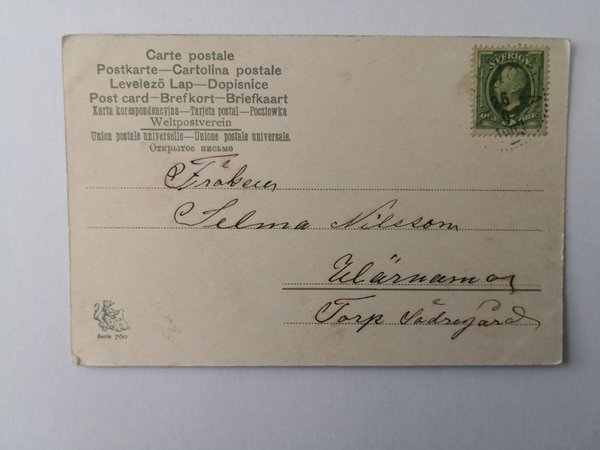 Carte postale
Postkarte—Cartolina postale
Levelező Lap—Dopisnice
Post card—Brefkort—Briefkaart
Karta korespondencyjna—Tarjeta postal—Pocztowka
Weltpostverein
Union postale universelle—Unione postale universale.
Открытое письмо
SVERIGE
Fröken
Selma Nilsson
Wärnamo
Torp Södregård
Serie 760